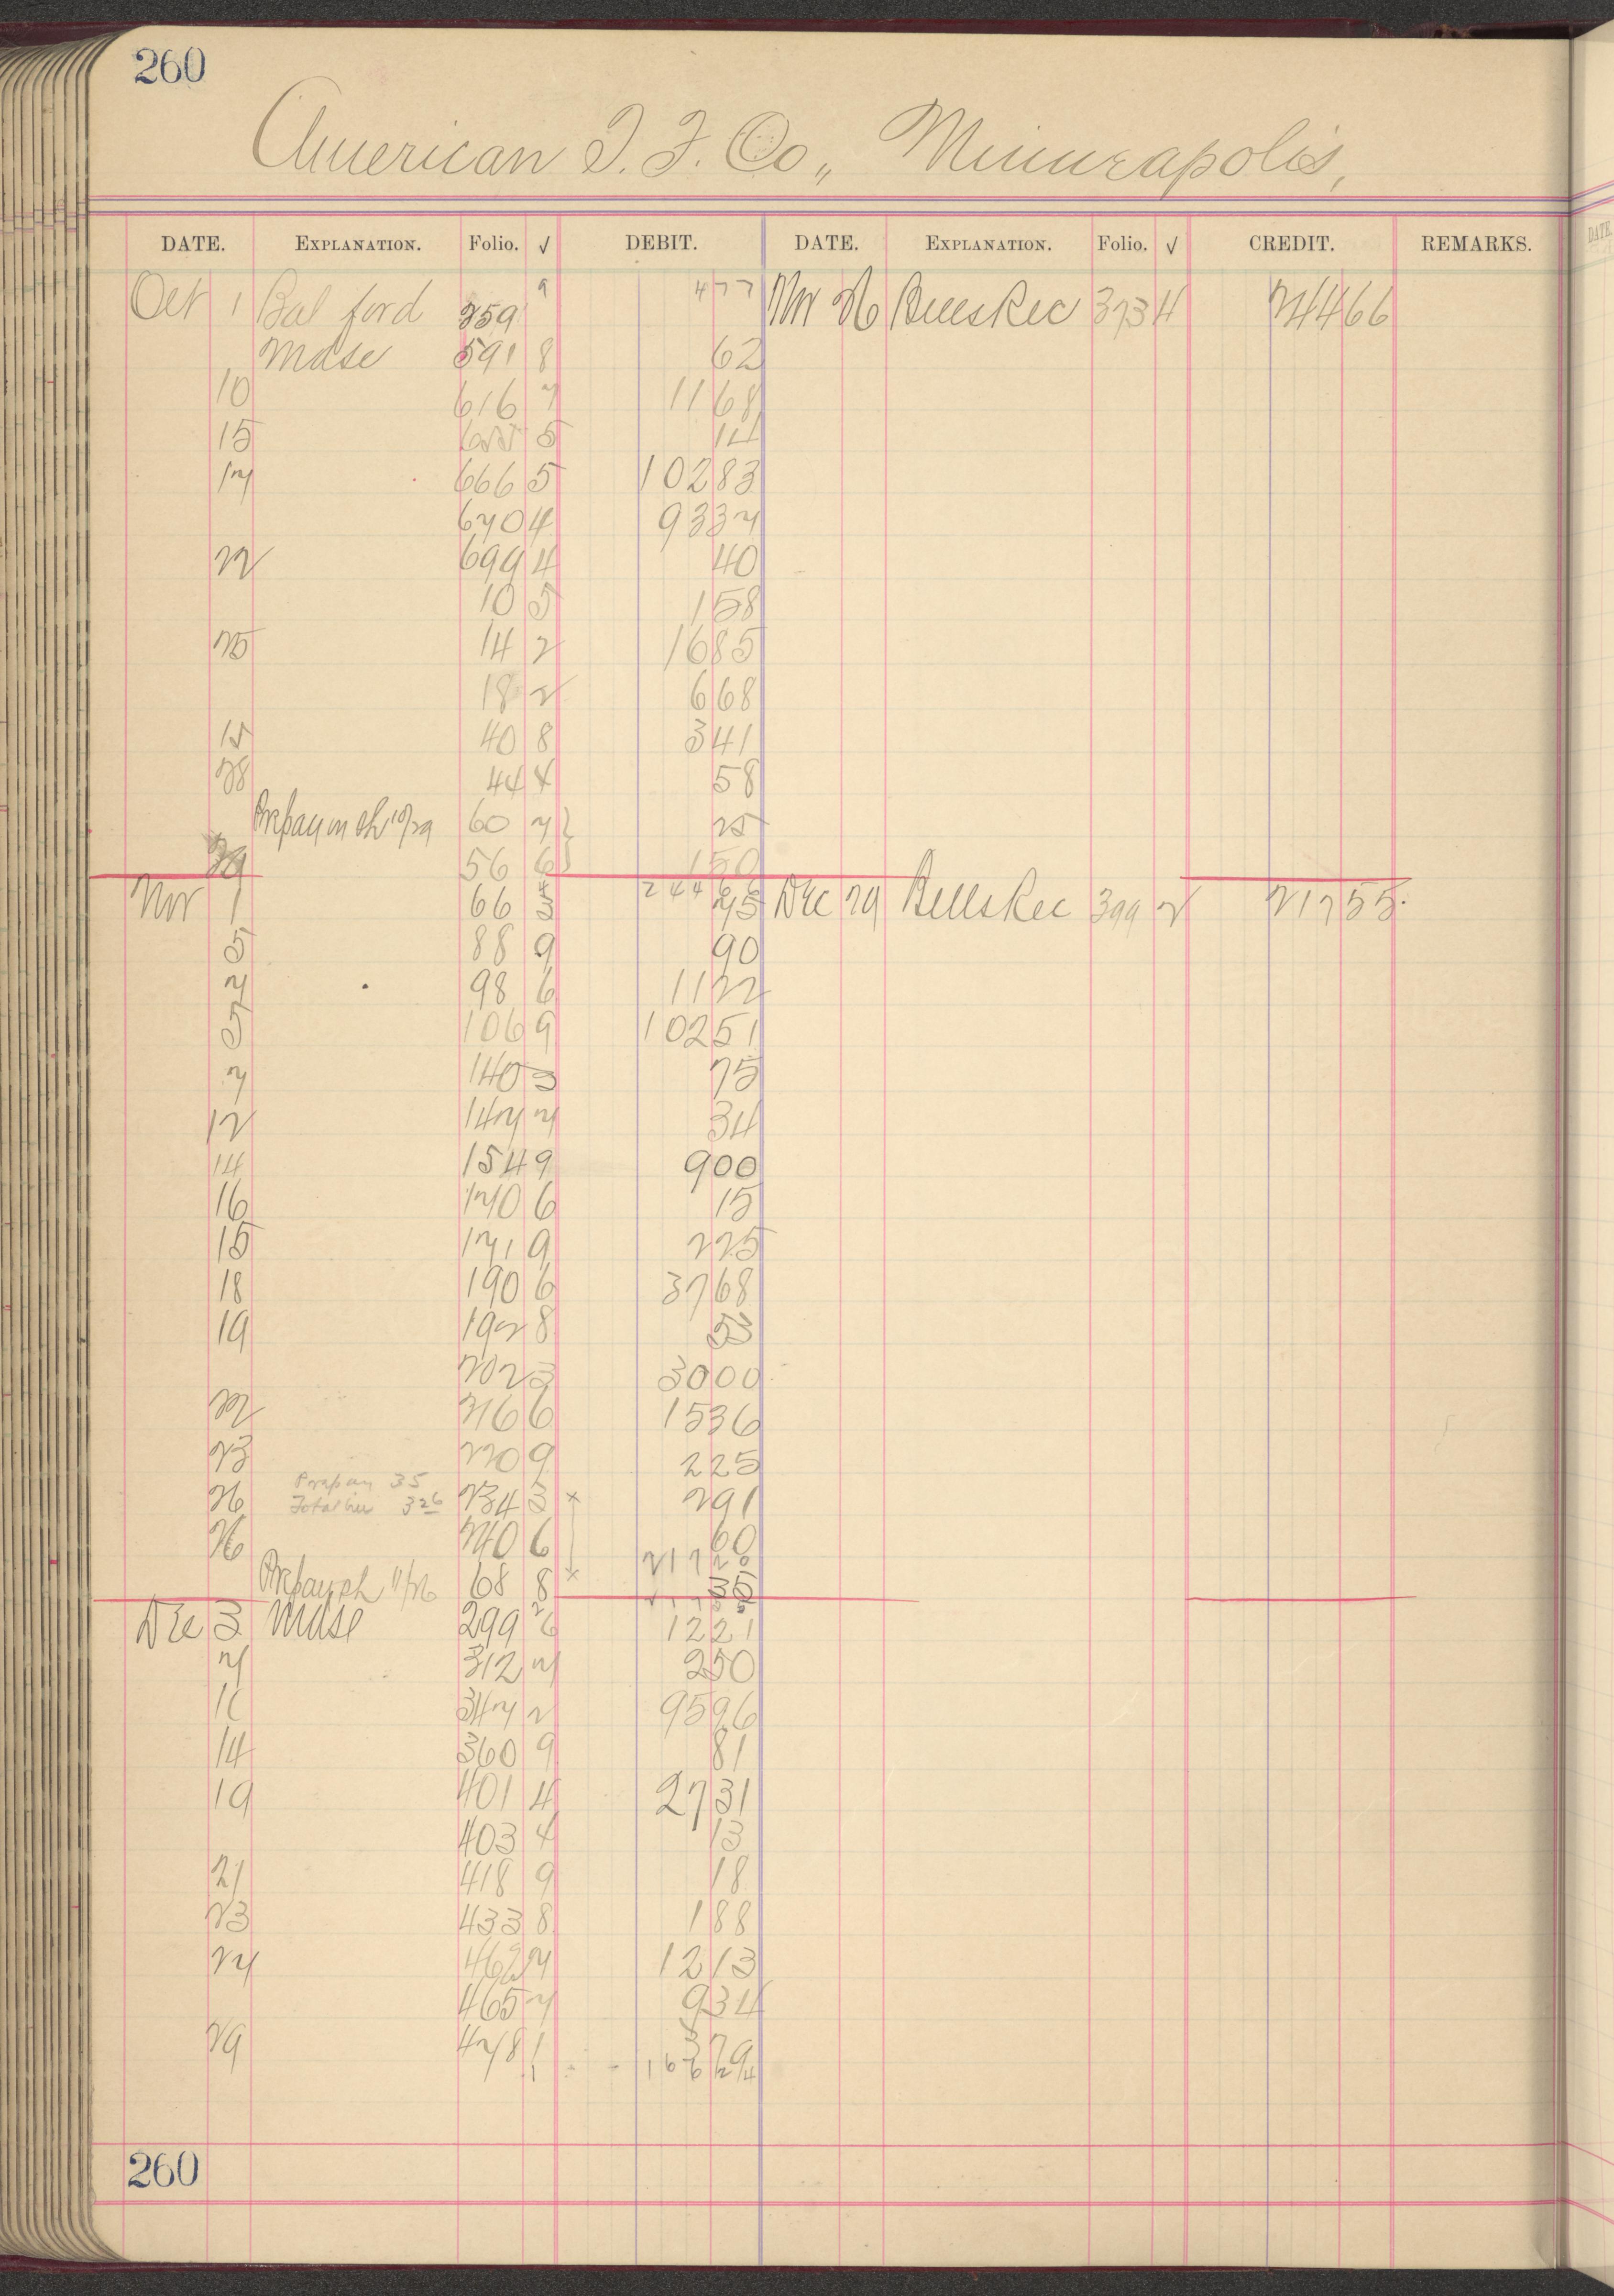 260
American T. F. Co., Minneapolis,
DATE. EXPLANATION. Folio. √ DEBIT. DATE. EXPLANATION. Folio. √ CREDIT. REMARKS.
Oct 1 Bal ford 259 9 4 77 Nov 26 Bills Rec 373 4 244 66
Mdse 591 8 62
10 616 7 11 68
15 655 5 14
17 666 5 102 83
670 4 93 37
22 699 4 40
10 5 1 58
25 14 2 16 85
18 2 6 68
40 8 3 41
28 44 4 58
Prepay on ch 10/29 60 7 25
29 56 6 1 50
244 66
Nov 1 66 5 45 Dec 29 Bills Rec 399 2 217 55
5 88 9 90
7 98 6 11 22
5 106 9 102 51
7 140 3 75
12 147 7 34
14 154 9 9 00
16 170 6 15
15 171 9 2 25
18 190 6 37 68
19 192 8 53
202 3 30 00
22 216 6 15 36
23 220 9 2 25
Prepay 35
26 Total 3 26 234 3 × 2 91
26 240 6 60
217 20
Prepay ch 11/26 68 8 × 35
Dec 3 Mdse 299 6 12 21
7 312 7 2 50
11 347 2 95 96
14 360 9 81
19 401 4 27 31
403 4 13
21 418 9 18
23 433 8 1 88
27 462 7 12 13
465 7 9 34
29 478 1 3 79
260